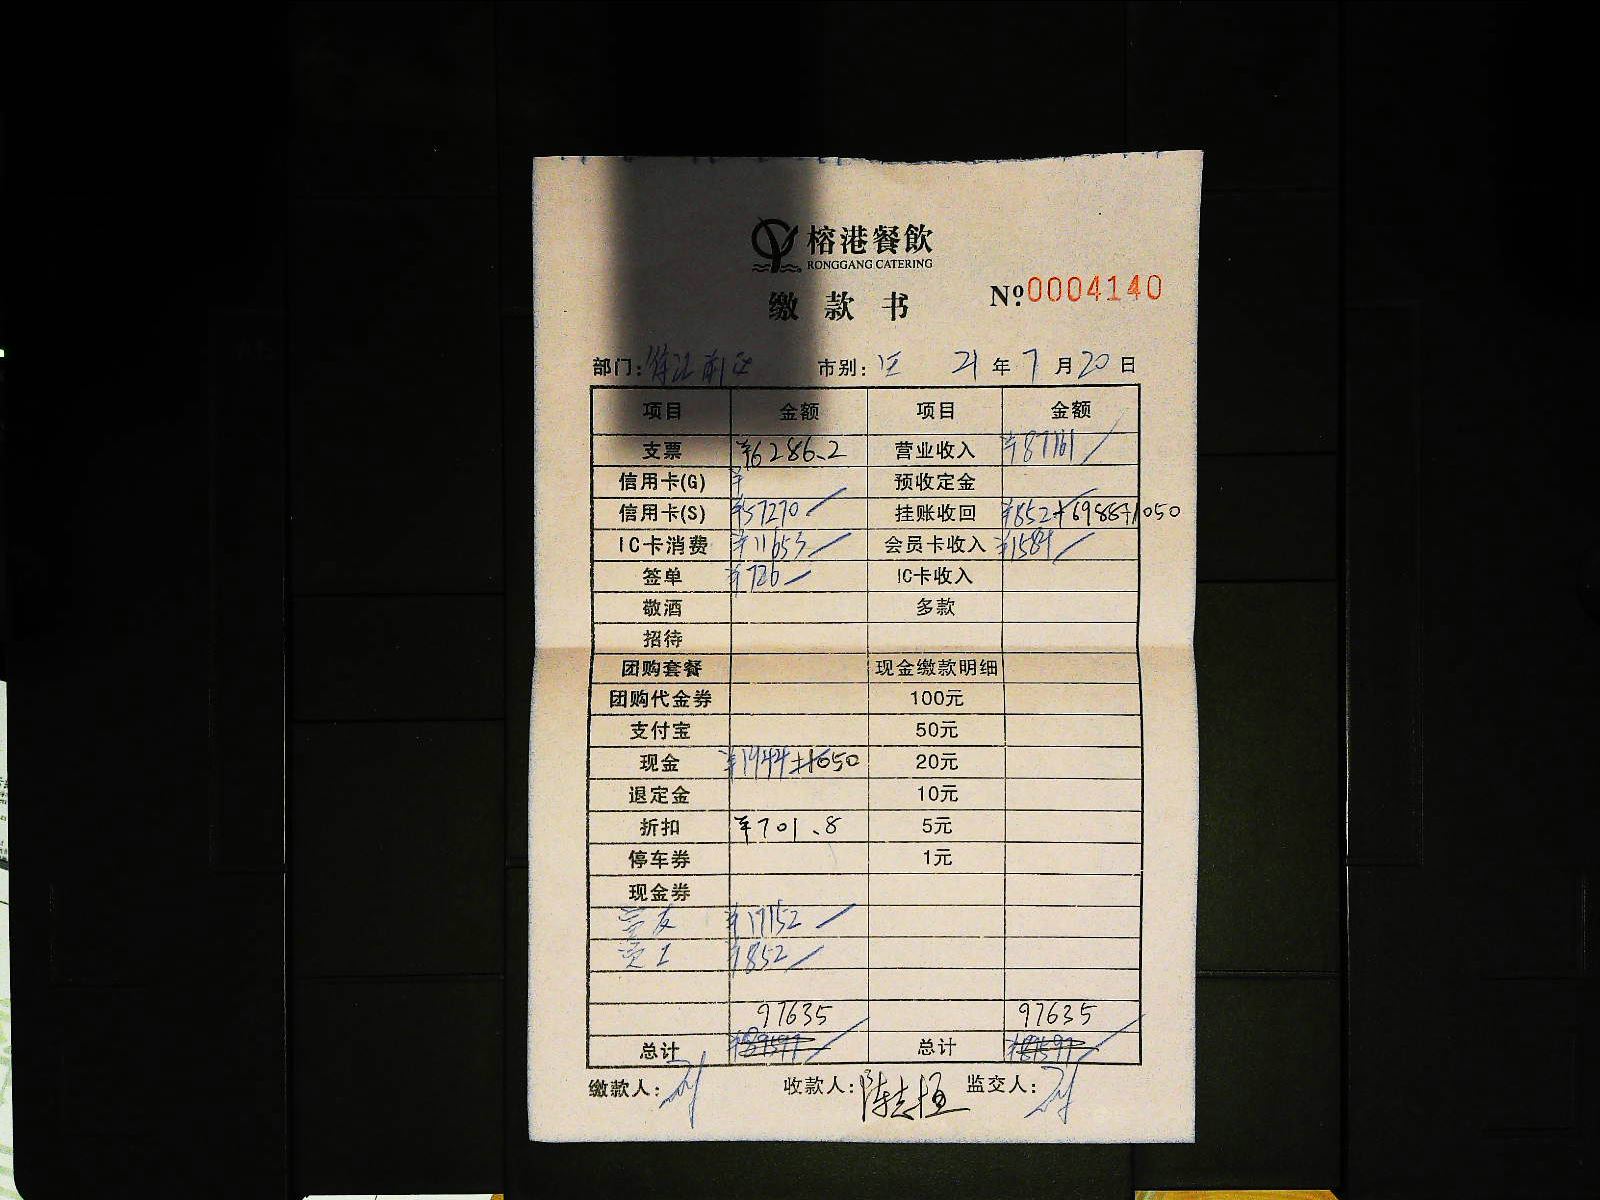 榕港餐飲
RONGGANG CATERING
缴款书 №0004140
部门: 市别: 21年7月20日
项目 金额 项目 金额
支票 ¥6286.2 营业收入 ¥87161
信用卡(G) ¥ 预收定金
信用卡(S) ¥57270 挂账收回 ¥852+6988+1050
IC卡消费 ¥11653 会员卡收入 ¥1584
签单 ¥726 IC卡收入
敬酒 多款
招待
团购套餐 现金缴款明细
团购代金券 100元
支付宝 50元
现金 ¥1944+1050 20元
退定金 10元
折扣 ¥701.8 5元
停车券 1元
现金券
¥17152
¥852
97635 97635
总计 总计
缴款人: 收款人:陈志恒 监交人: